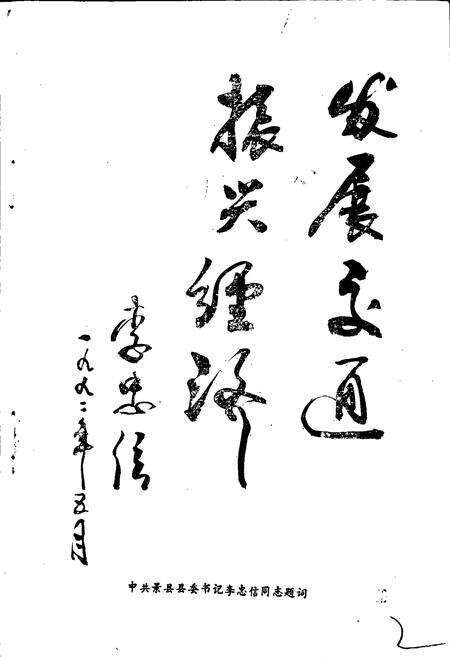 发展交通
振兴经济
李忠信
一九九二年五月
中共景县县委书记李忠信同志题词